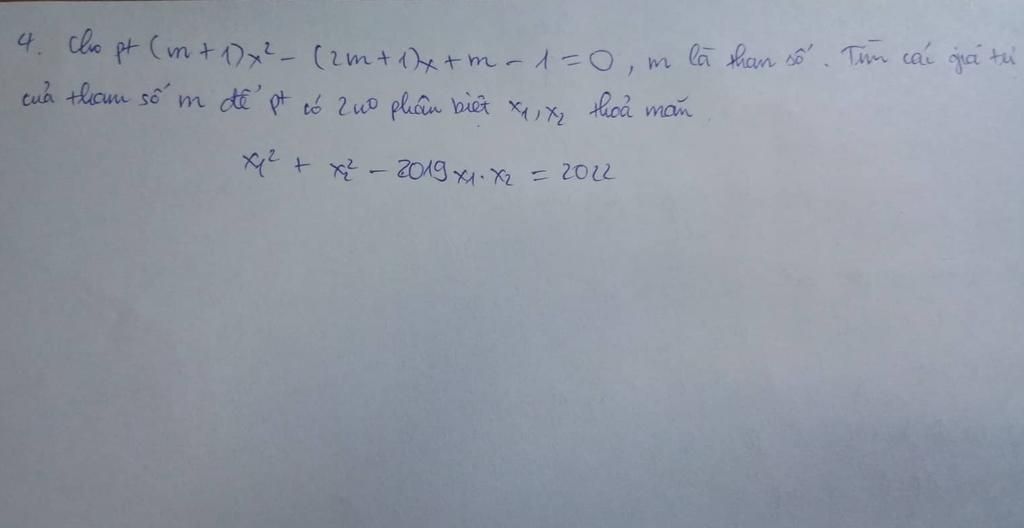 4. Cho pt (m+1)x² - (2m+1)x + m - 1 = 0, m là tham số. Tìm các giá trị
của tham số m để pt có 2 no phân biệt x₁, x₂ thoả mãn
x₁² + x₂² - 2019x₁.x₂ = 2022